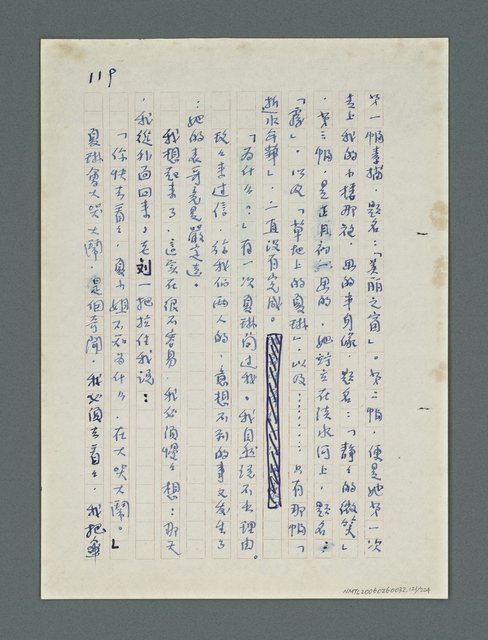 119
第一幅素描，題名：「美丽之窗」。第二幅，便是她第一次
去上我的小楼那夜，画的半身像，題名：「靜靜的微笑」
，第三幅，是正月初一画的，她竚立在淡水河上，題名：
「霧」，以及「草地上的夏琳」，以及………只有那幅「
逝水年華」，一直没有完成。
「为什么？」有一次夏琳问过我。我自我说不出理由。
玫玫来过信，给我们两人的，意想不到的事又发生了
：她的表哥竟是嚴定遠。
我想起来了，這实在很不容易，我必須慢慢想：那天
，我從外面回来，老刘一把拉住我说：
「你快去看看，夏小姐不知为什么，在大哭大鬧。」
夏琳會大哭大鬧，是個奇闻，我必須去看看，我把傘
NMTL20060260032,121/224